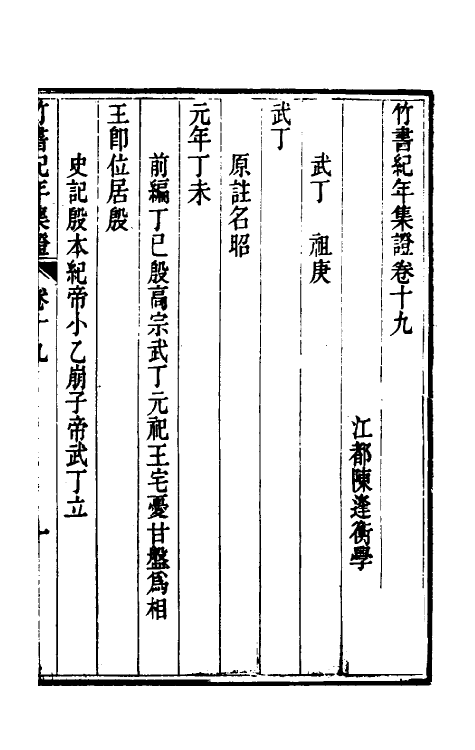 竹書紀年集證卷十九
江都陳逢衡學
武丁　祖庚
武丁
原註名昭
元年丁未
前編丁巳殷高宗武丁元祀王宅憂甘盤爲相
王卽位居殷
史記殷本紀帝小乙崩子帝武丁立
竹書紀年集證　卷十九　一